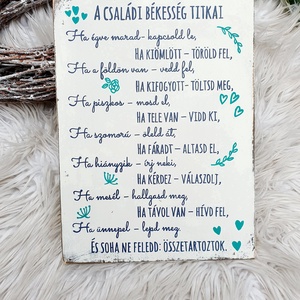 A CSALÁDI BÉKESSÉG TITKAI
Ha égve marad - kapcsold le,
HA KIÖMLÖTT – TÖRÖLD FEL,
Ha a földön van – vedd fel,
HA KIFOGYOTT – TÖLTSD MEG,
Ha piszkos – mosd el,
HA TELE VAN – VIDD KI,
Ha szomorú – öleld át,
HA FÁRADT – ALTASD EL,
Ha hiányzik – írj neki,
HA KÉRDEZ – VÁLASZOLJ,
Ha mesél – hallgasd meg,
HA TÁVOL VAN – HÍVD FEL,
Ha ünnepel – lepd meg.
ÉS SOHA NE FELEDD: ÖSSZETARTOZTOK.